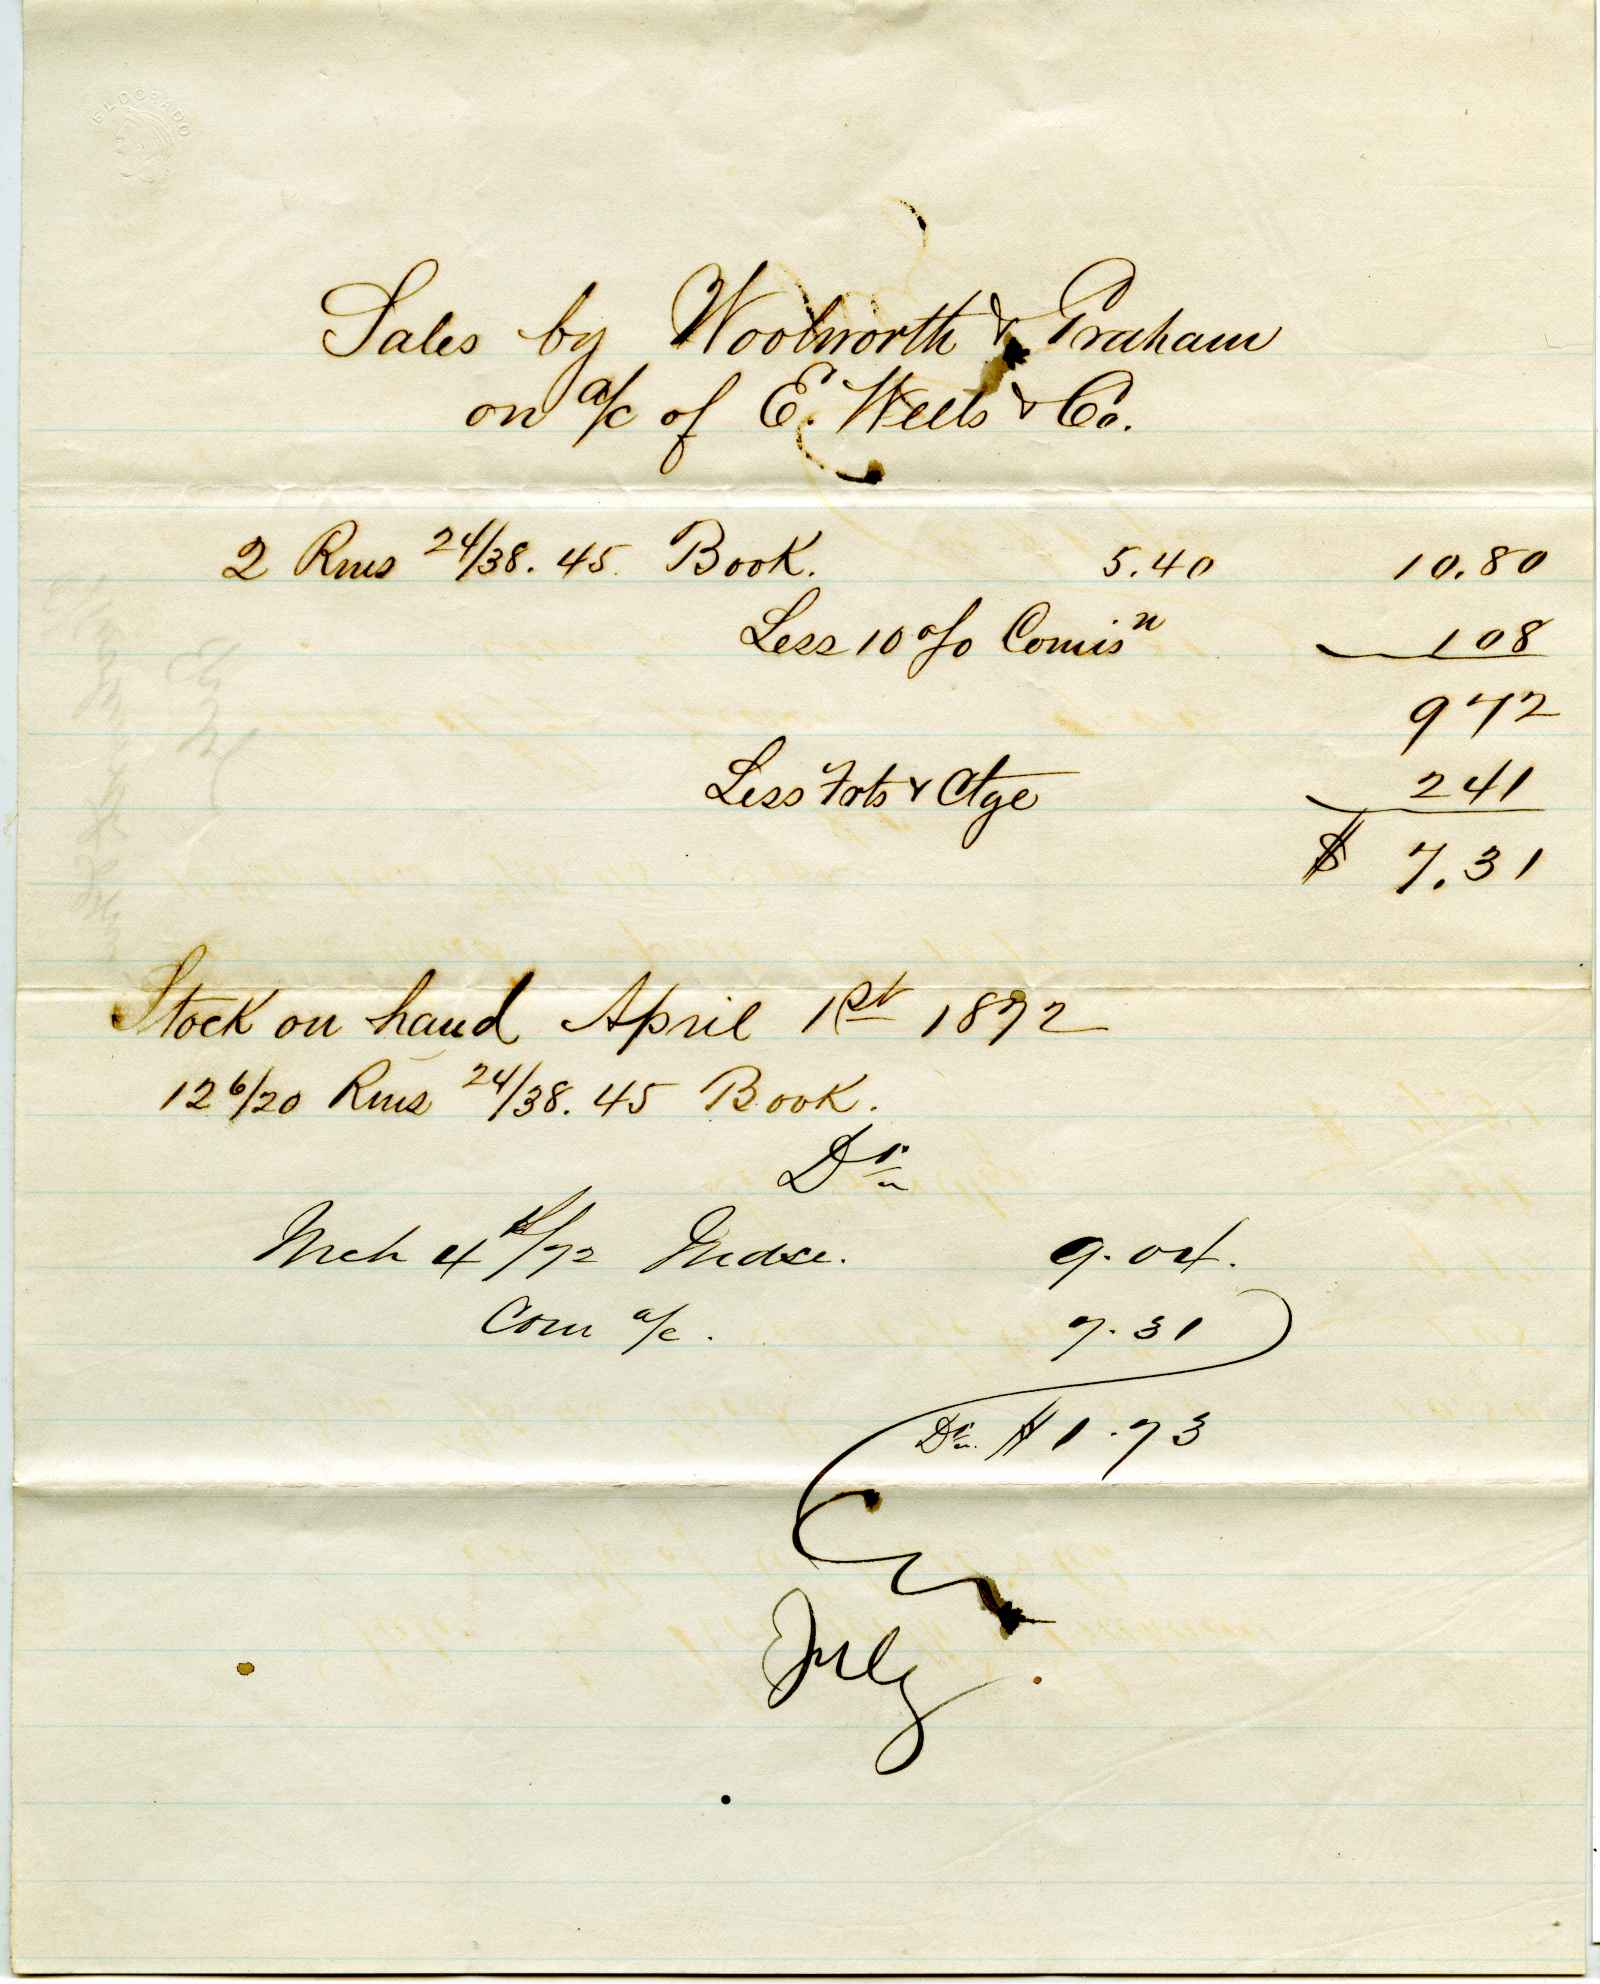 ELDORADO
Sales by Woolworth & Graham
on a/c of E. Wells & Co.
2 Rms 24/38. 45 Book. 5.40 10.80
Less 10 o/o Comisn 108
972
Less Frts & Ctge 241
$ 7.31
Stock on hand April 1st 1872
12 6/20 Rms 24/38. 45 Book.
Dr
Mch 4th/72 Mdse. 9.04.
Com a/c. 7.31
Dr. $ 1.73
July